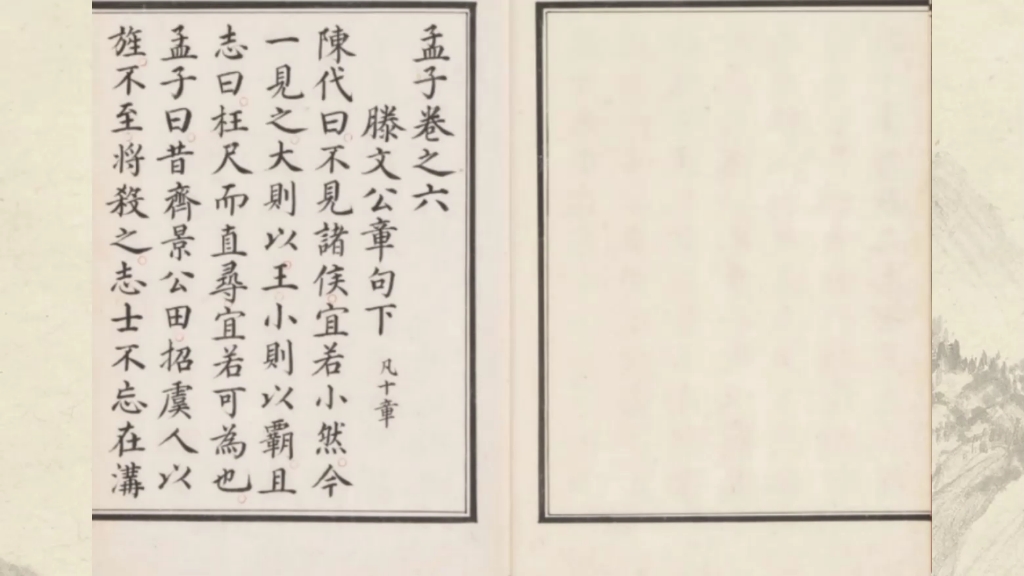 孟子卷之六
滕文公章句下 凡十章
陳代曰不見諸侯宜若小然今
一見之大則以王小則以霸且
志曰枉尺而直尋宜若可為也
孟子曰昔齊景公田招虞人以
旌不至將殺之志士不忘在溝